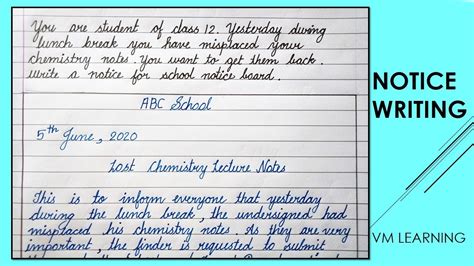 You are student of class 12. Yesterday during
lunch break you have misplaced your
chemistry notes. You want to get them back.
write a notice for school notice board.
ABC School
5th June, 2020
Lost Chemistry Lecture Notes
This is to inform everyone that yesterday
during the lunch break, the undersigned had
misplaced his chemistry notes. As they are very
important, the finder is requested to submit
NOTICE
WRITING
VM LEARNING